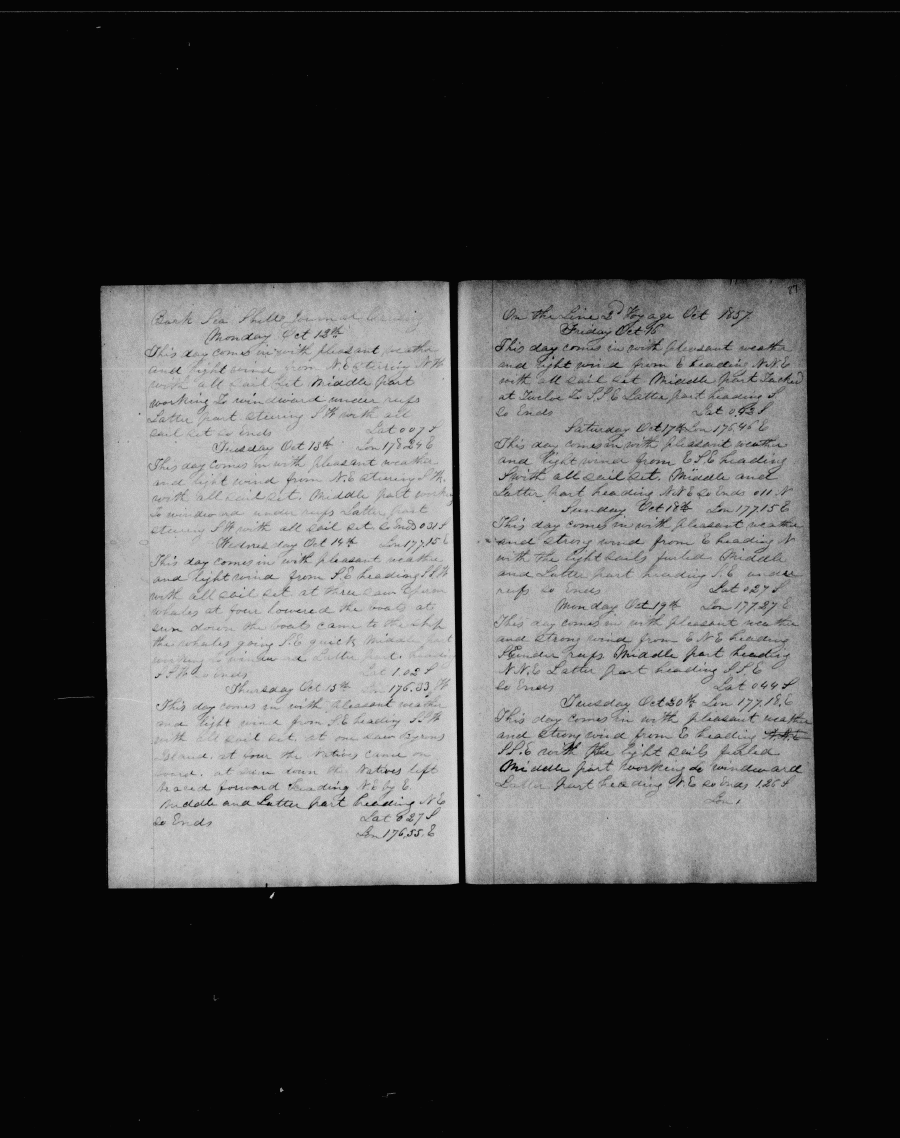 Bark Sea Journal Cruising
Monday Oct 12th
This day comes in with pleasant weather
and light wind from N.E steering N.W
with all sail set Middle part
working to windward under reefs
Latter part steering S W with all
sail set so Ends Lat 0 07 S
Tuesday Oct 13th Lon 178 24 E
This day comes in with pleasant weather
and light wind from N.E steering S.W.
with all sail set. Middle part working
to windward under reefs Latter part
steering S W with all sail set so Ends 0 31 S
Wednesday Oct 14th Lon 177,15 E
This day comes in with pleasant weather
and light wind from S.E heading S.S.W
with all sail set at three saw Sperm
whales at four lowered the boats at
sun down the boats came to the ship
the whales going S.E quick Middle part
working to windward Latter part heading
S S W so ends Lat 1.02 S
Thursday Oct 15th Lon 176.33 W
This day comes in with pleasant weather
and light wind from S.E heading S.S.W
with all sail set. at one saw Byrons
Island. at four the Natives came on
board. at sun down the Natives left
braced forward heading N.E by E
Middle and Latter part heading N.E
so Ends Lat 0 27 S
Lon 176,55. E
87
On the Line 2d Voyage Oct 1857
Friday Oct 16
This day comes in with pleasant weather
and light wind from E heading N.N.E
with all sail set Middle part Tacked
at Twelve to S.S E Latter part heading S
so Ends Lat 0,43 S
Saturday Oct 17th Lon 176,46 E
This day comes in with pleasant weather
and light wind from E S.E heading
S with all sail set. Middle and
Latter part heading N.N.E so Ends 0 11 N
Sunday Oct 18th Lon 177 15 E
This day comes in with pleasant weather
and strong wind from E heading N
with the light sails furled Middle
and Latter part heading S.E under
reefs so Ends Lat 0 27 S
Monday Oct 19th Lon 177.27 E
This day comes in with pleasant weather
and strong wind from E.N.E heading
S.E under reefs Middle part heading
N.N.E Latter part heading S S E
so Ends Lat 0 44 S
Tuesday Oct 20th Lon 177,18,E
This day comes in with pleasant weather
and strong wind from E heading N.N.E
S S.E with the light sails furled
Middle part working to windward
Latter part heading N.E so Ends 1 26 S
Lon,